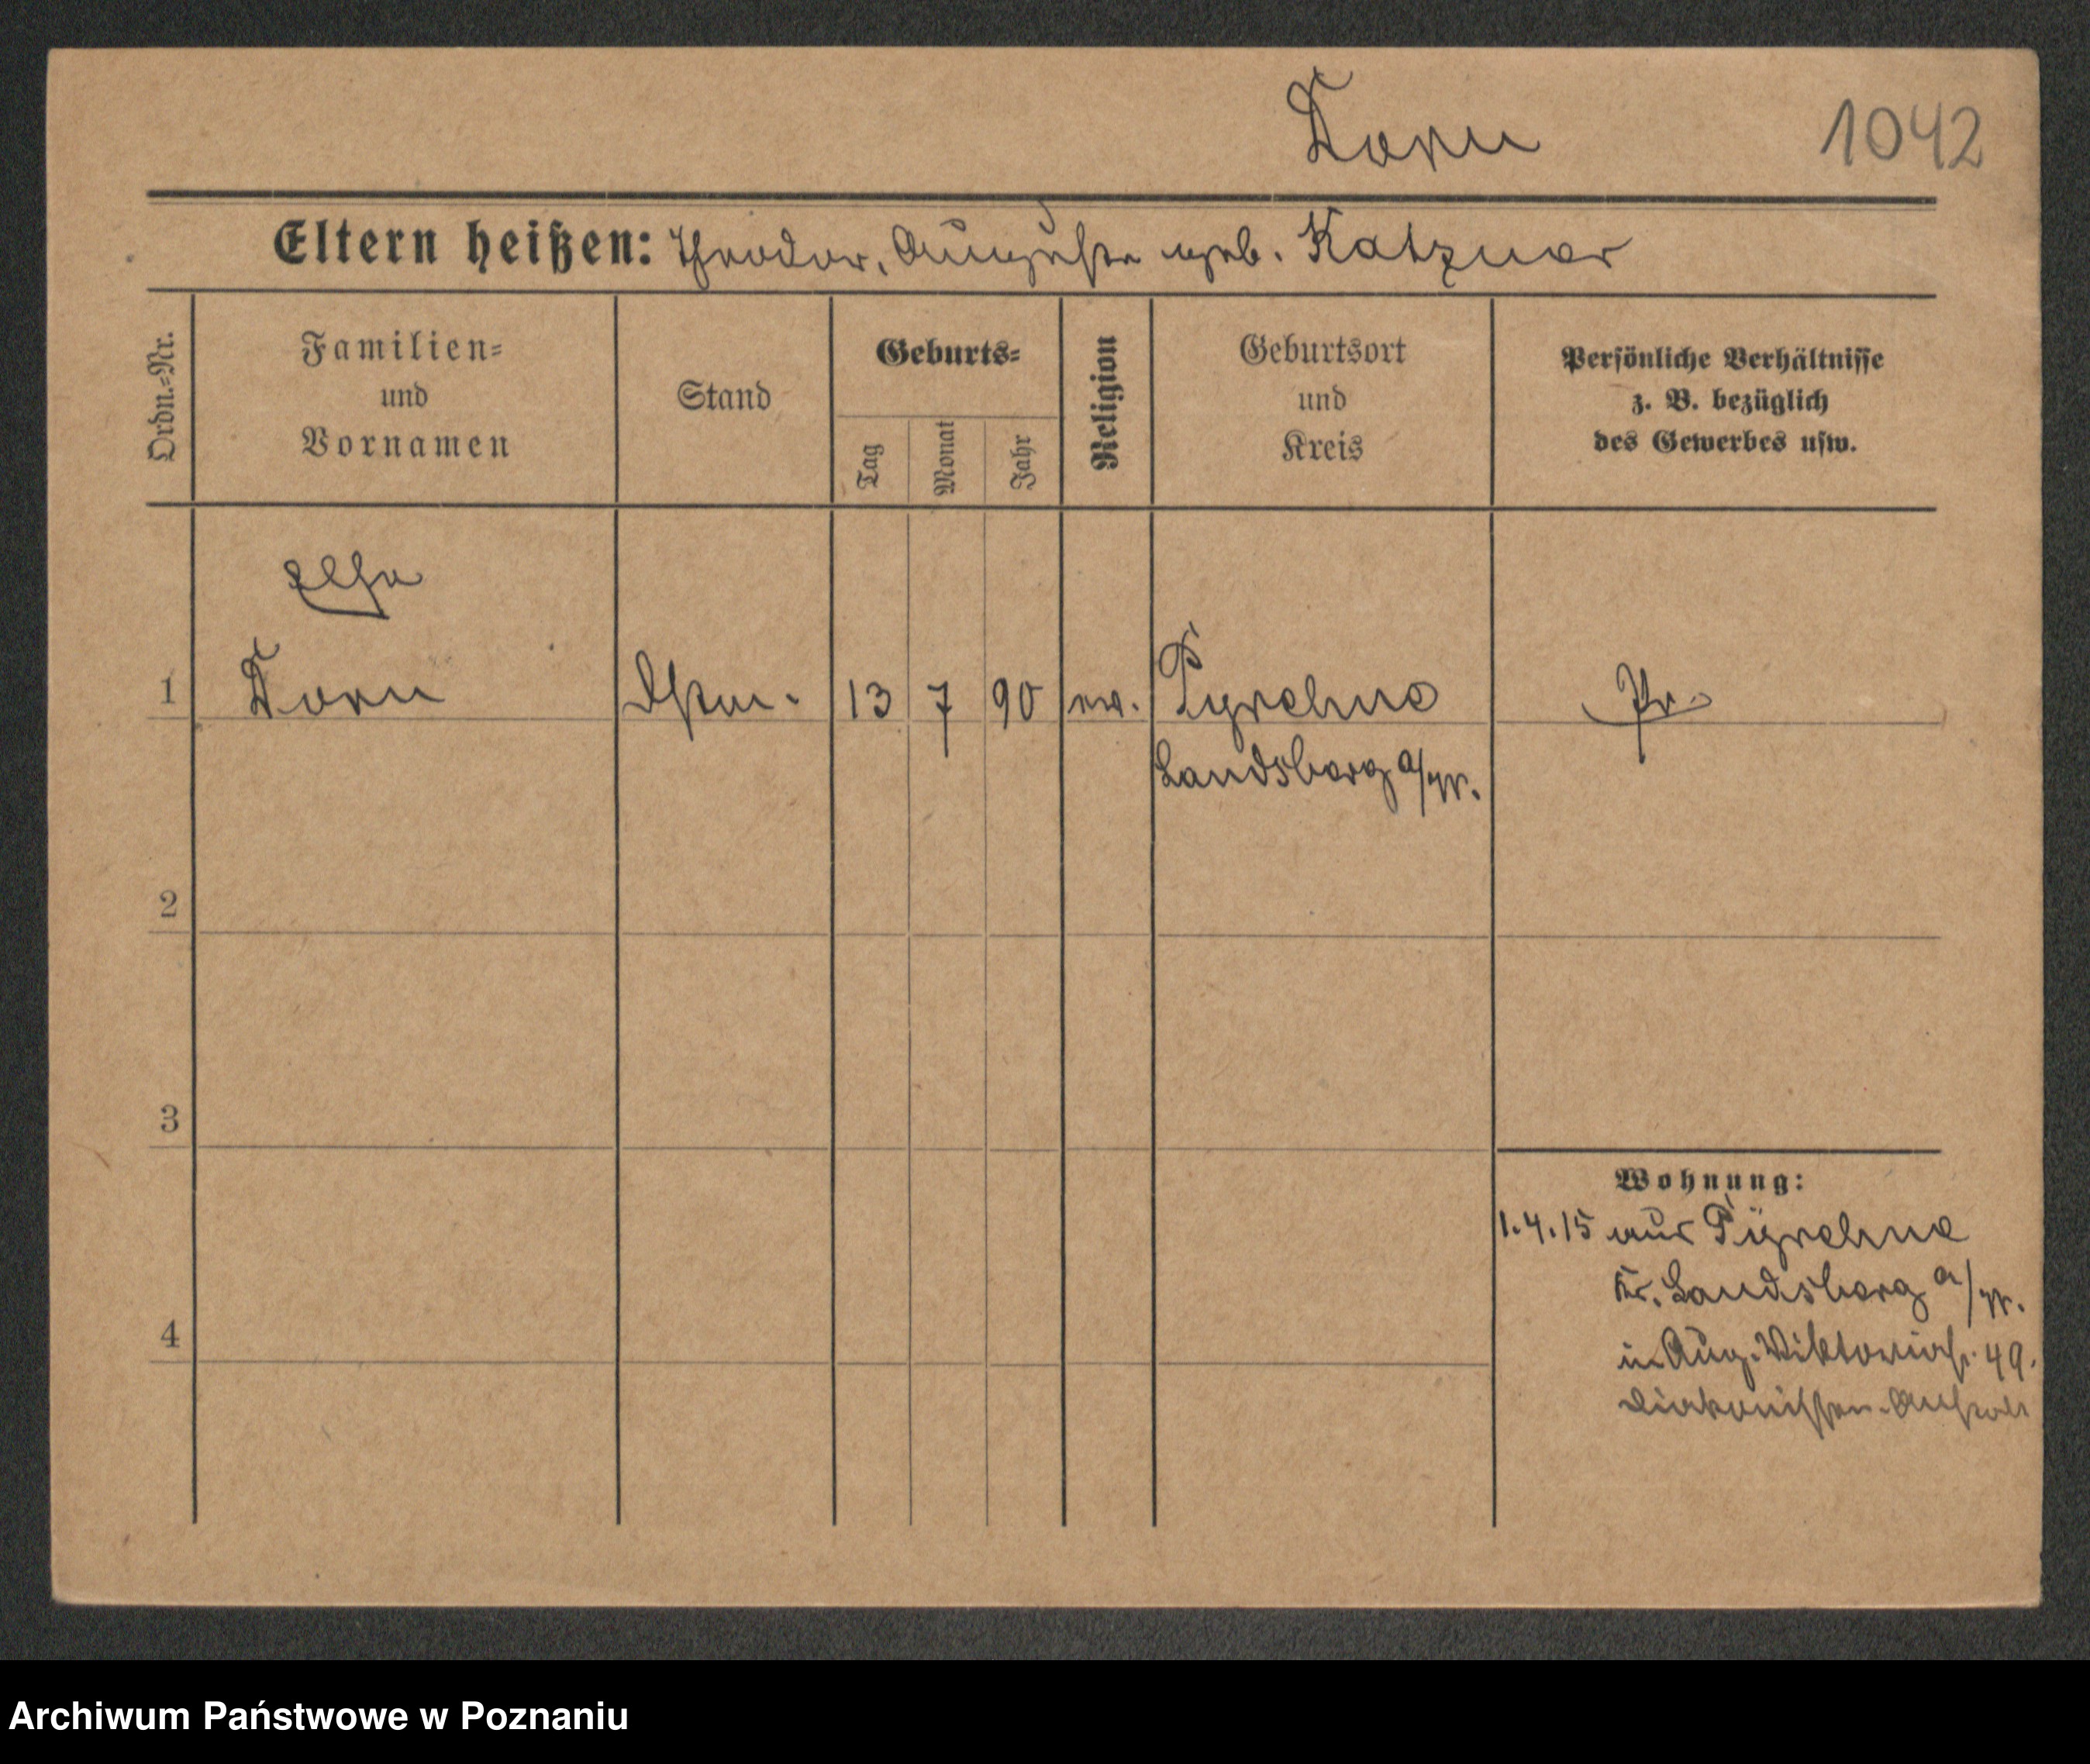 Dorn
1042
Eltern heißen: Theodor, Auguste geb. Katzner
Ordn.-Nr.
Familien-
und
Vornamen
Stand
Geburts-
Tag
Monat
Jahr
Religion
Geburtsort
und
Kreis
Persönliche Verhältnisse
z. B. bezüglich
des Gewerbes usw.
Else
1 Dorn 13 7 90 ev. Pyrehne Pr.
Landsberg a/W.
2
3
4
Wohnung:
1.4.15 aus Pyrehne
Kr. Landsberg a/W.
in Aug. Viktoriastr. 49.
Diakonissen-Anstalt
Archiwum Państwowe w Poznaniu